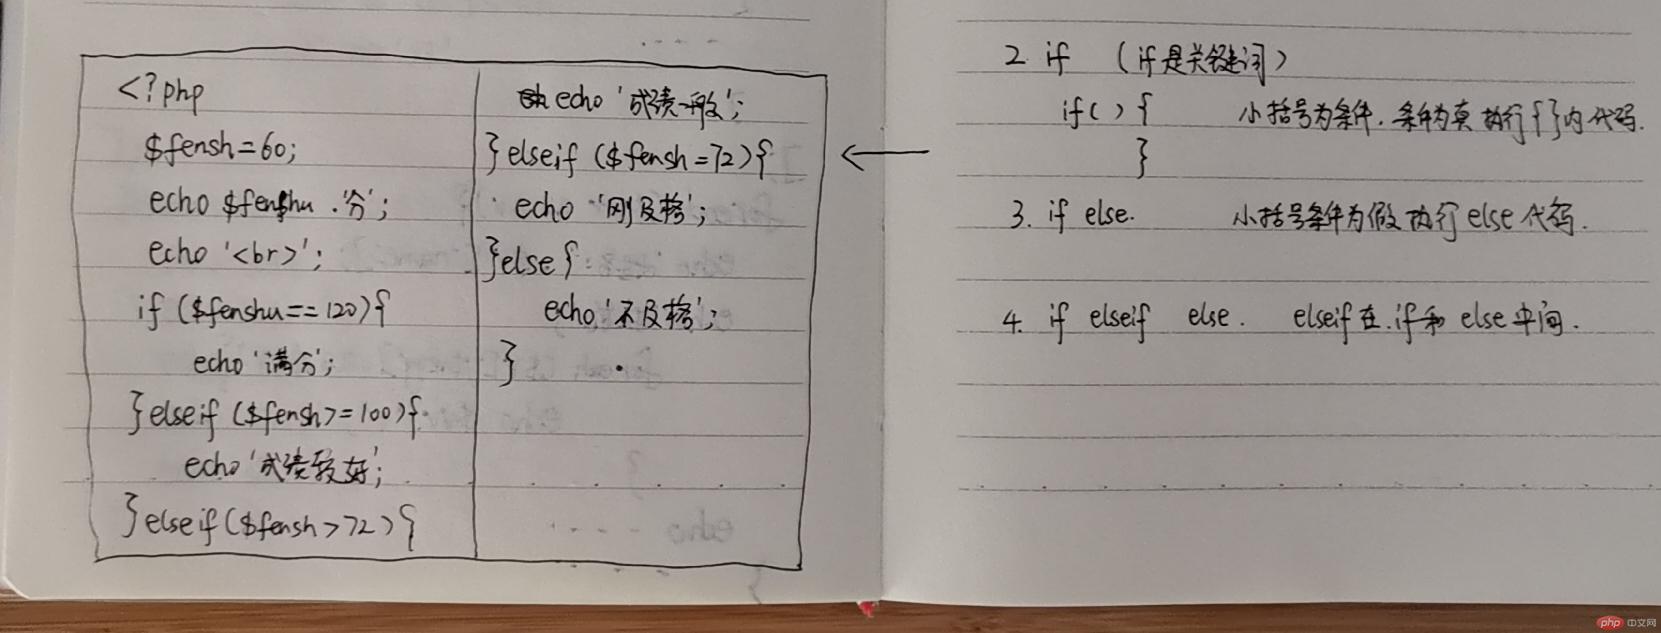 <?php
$fensh=60;
echo $fenshu .'分';
echo '<br>';
if ($fenshu==120){
echo '满分';
}elseif ($fensh>=100){
echo '成绩较好';
}elseif ($fensh>72){
echo '成绩一般';
}elseif ($fensh=72){
echo '刚及格';
}else{
echo '不及格';
}
2. if (if是关键词)
if(){ 小括号为条件.条件为真 执行{}内代码.
}
3. if else. 小括号条件为假 执行else代码.
4. if elseif else. elseif在.if和else中间.
php 中文网